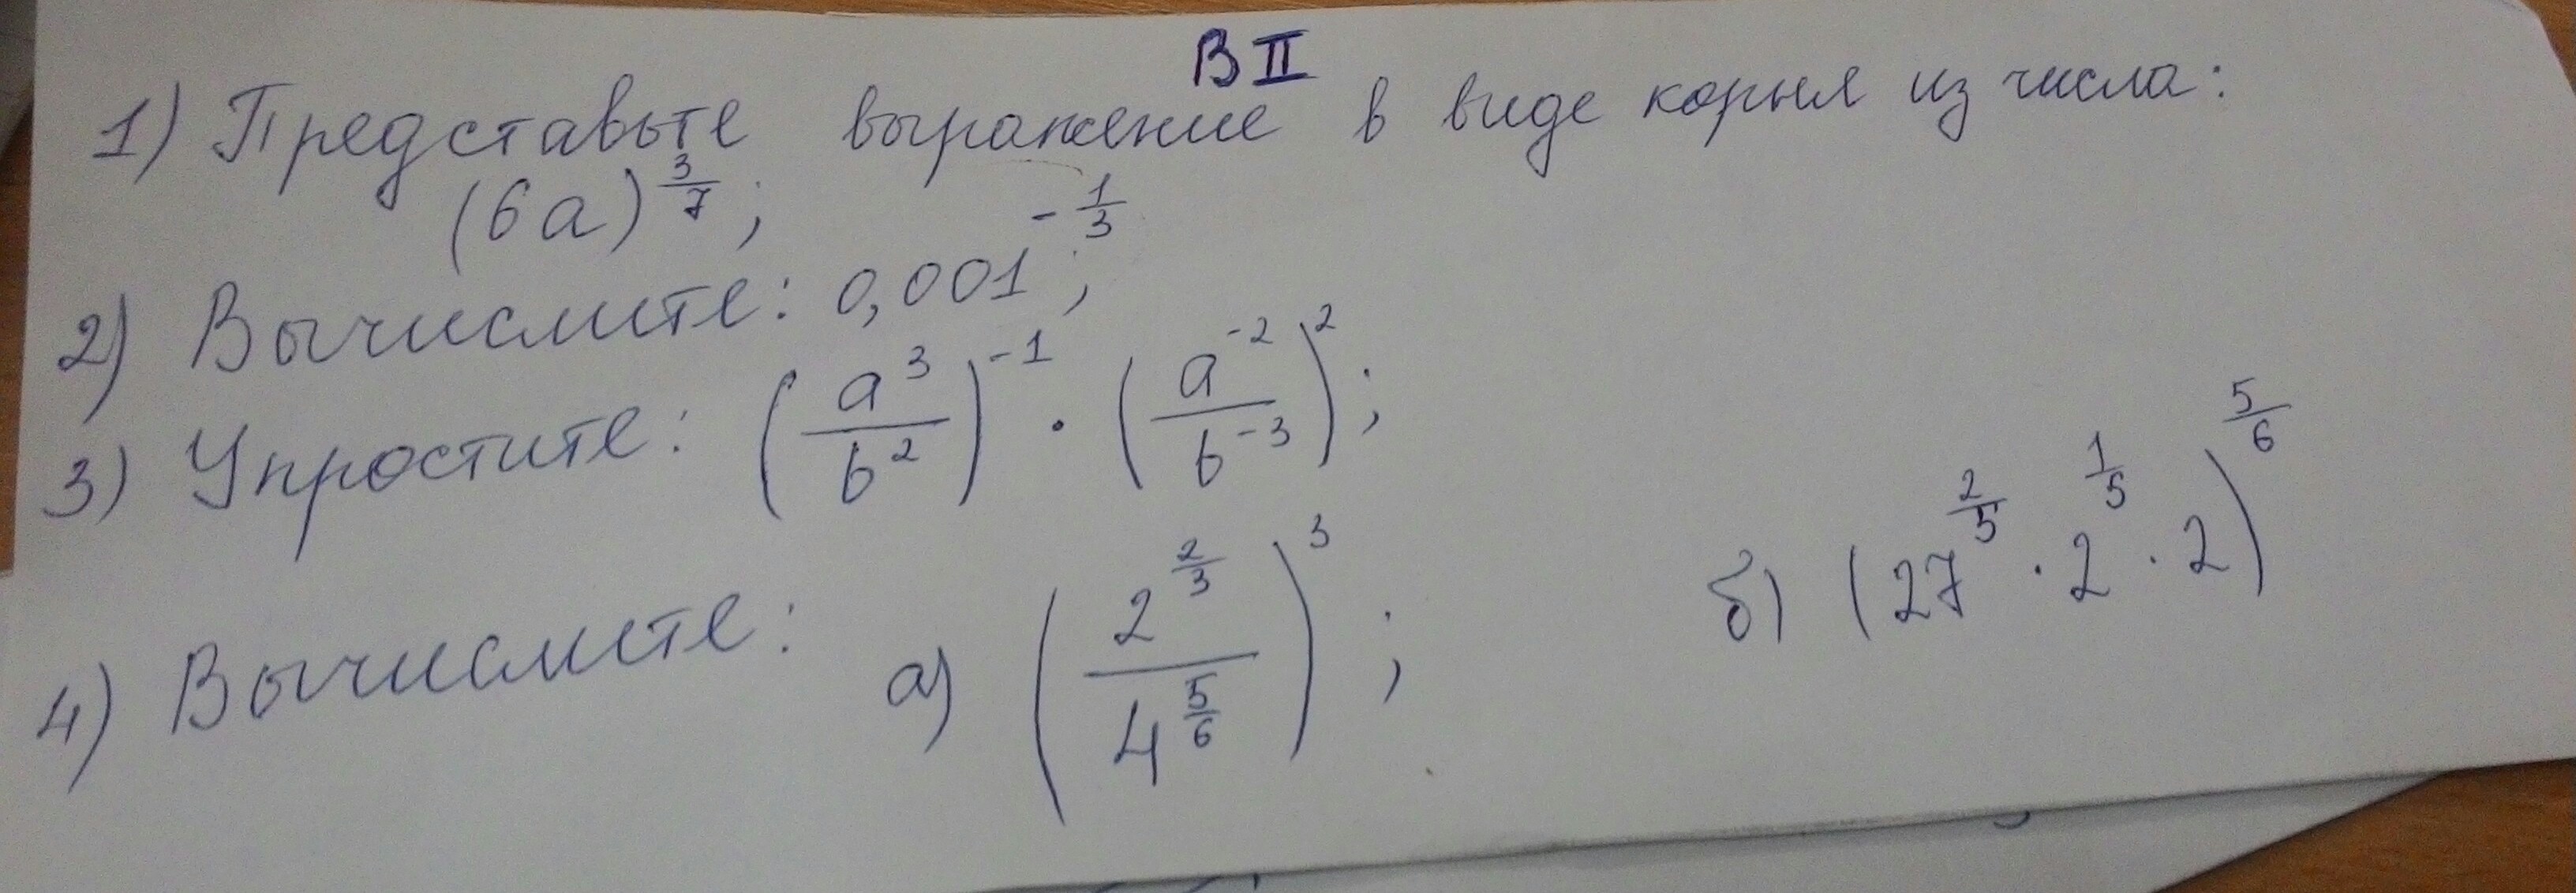 В II
1) Представьте выражение в виде корня из числа:
(6a)^{3/7};
2) Вычислите: 0,001^{-1/3};
3) Упростите: (a^3/b^2)^{-1} · (a^{-2}/b^{-3})^2;
4) Вычислите: а) (2^{2/3}/4^{5/6})^3; б) (27^{2/5} · 2^{1/5} · 2)^{5/6}